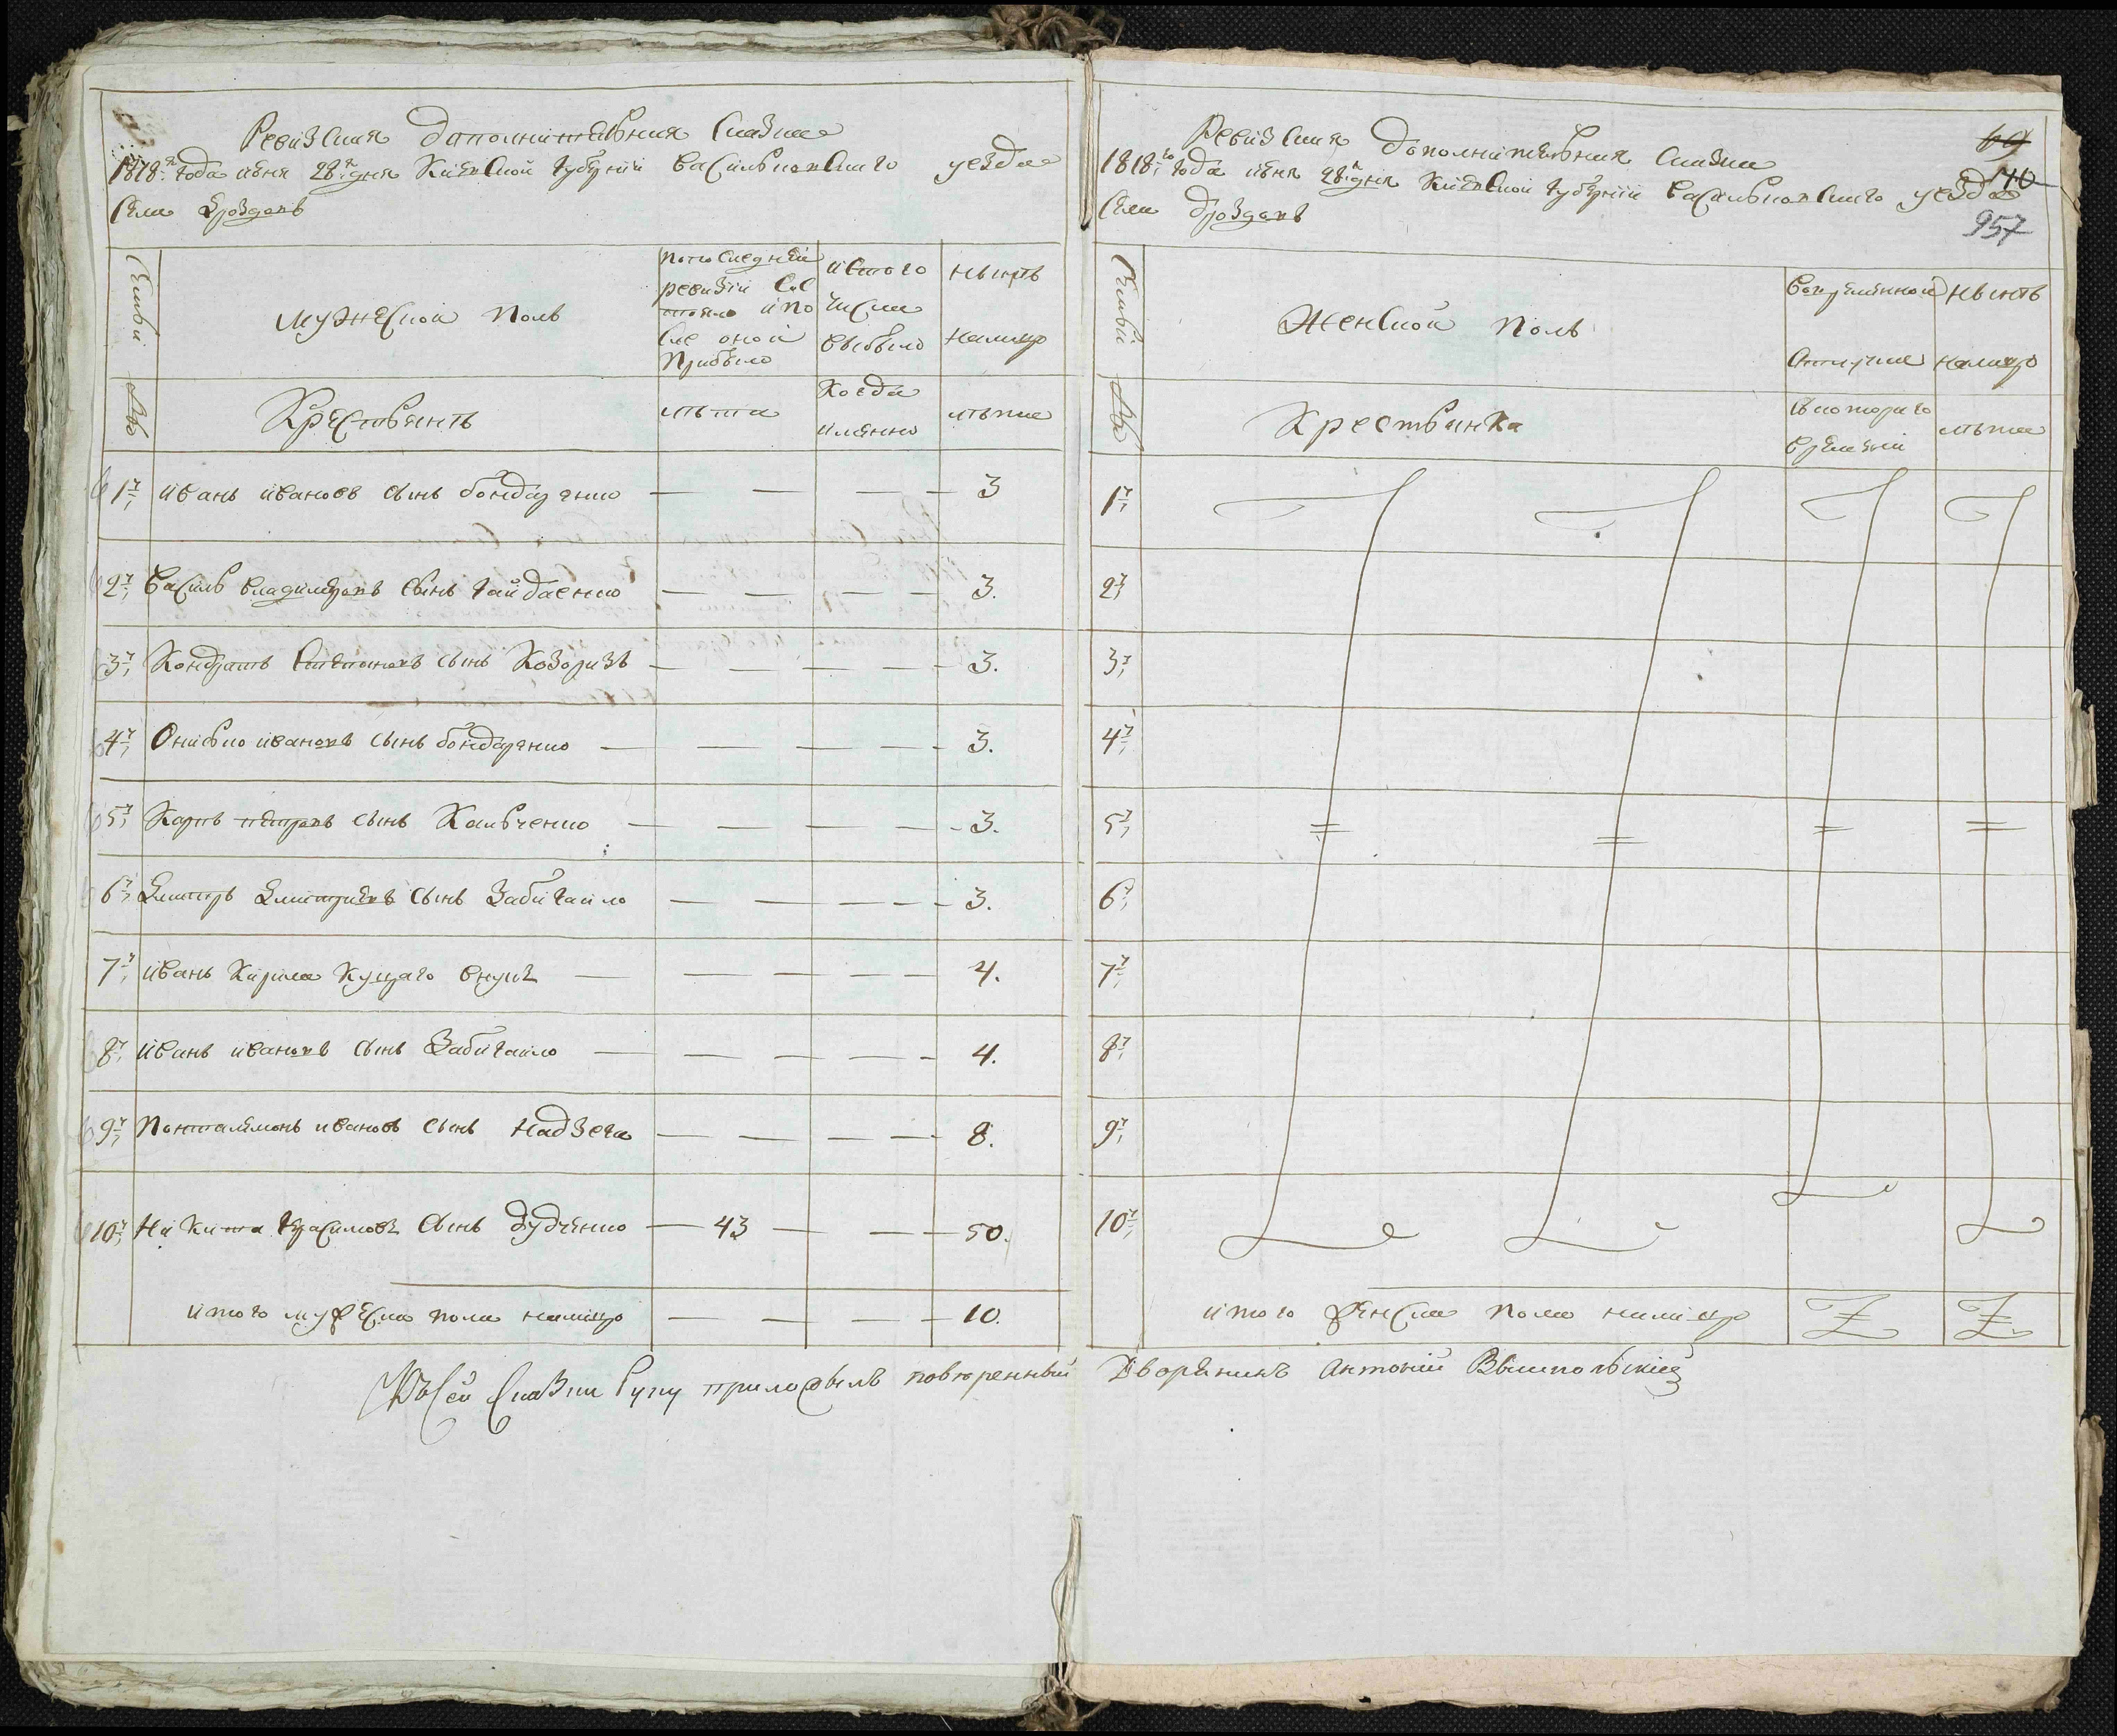 Ревизская дополнительная сказка
1818го года июня 28го дня Киевской губернии васильковского уезда
Села Дроздовъ
Семьи
мужеской полъ
По последней
ревизии сос
тояло и по
сле оной
прибыло
ис того
числа
выбыло
ныне
налицо
№
Крестьянъ
лѣта
Когда
именно
лѣта
1й иванъ ивановъ сынъ бондаренко — — — — 3
2й василь владимеровъ сынъ гайдаенко — — — — 3.
3й Кондратъ Степановъ сынъ Козоризъ — — — — 3.
4й Онисько ивановъ сынъ бондаренко — — — — 3.
5й Карпъ петровъ сынъ Кальченко — — — — 3.
6й Дмитръ Дмитриевъ сынъ Забигайло — — — — 3.
7й иванъ Кирила Куцаго внукъ — — — — 4.
8й иванъ ивановъ сынъ Забигайло — — — — 4.
9й Понталимонъ ивановъ сынъ Надзега — — — — 8.
10й Никита Герасимовъ сынъ Дудченко — 43 — — — 50.
итого мужеска пола налицо — — — — 10.
69
140
957
Ревизская дополнительная сказка
1818го года июня 28го дня Киевской губернии васильковского уезда
Села Дроздовъ
Семьи
Женской полъ
Во временной
отлучке
ныне
налицо
№
Крестьянка
Съ которого
времени
лѣта
1й
2й
3й
4й
5й
6й
7й
8й
9й
10й
итого женска пола налицо
Къ сей сказки руку приложилъ поверенный Дворянинъ Антоній Вышпольский